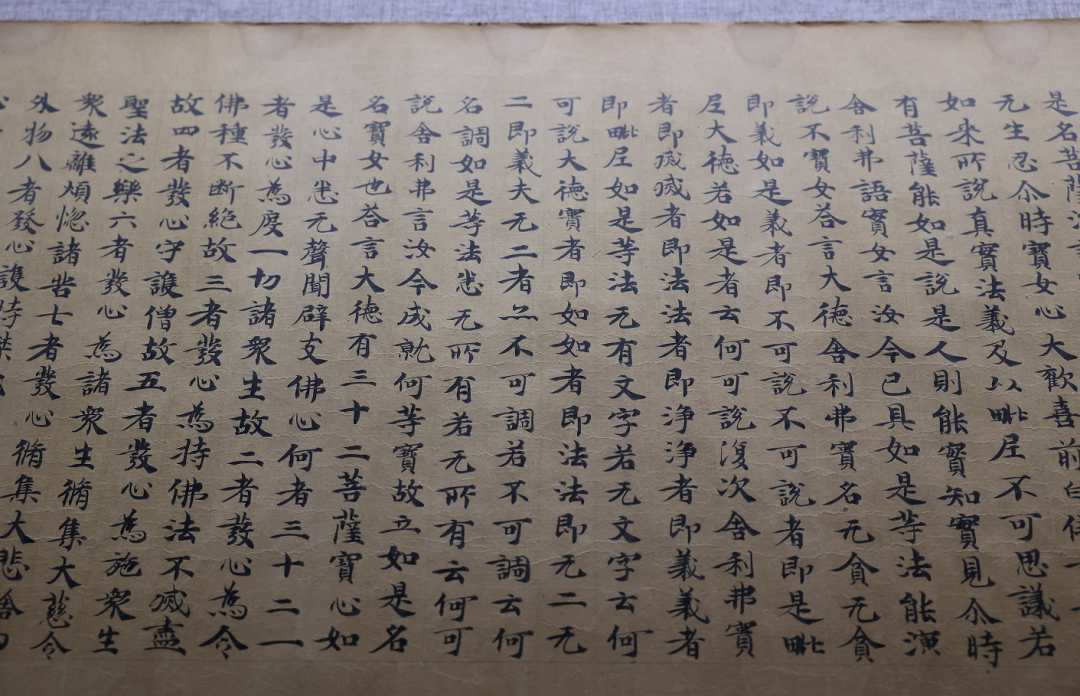 是名菩薩
无生忍尒時寶女心大歡喜前白佛
如來所說真實法義及以毗尼不可思議若
有菩薩能如是說是人則能實知實見尒時
舍利弗語寶女言汝今已具如是等法能演
說不寶女荅言大德舍利弗寶名无貪无貪
即義如是義者即不可說不可說者即是毗
尼大德若如是者云何可說復次舍利弗寶
者即滅滅者即法法者即浄浄者即義義者
即毗尼如是等法无有文字若无文字云何
可說大德寶者即如如者即法法即无二无
二即義夫无二者亦不可調若不可調云何
名調如是等法悉无所有若无所有云何可
說舍利弗言汝今成就何等寶故立如是名
名寶女也荅言大德有三十二菩薩寶心如
是心中悉无聲聞辟支佛心何者三十二一
者發心為度一切諸眾生故二者發心為令
佛種不断絶故三者發心為持佛法不滅盡
故四者發心守護僧故五者發心為施眾生
聖法之樂六者發心為諸眾生脩集大慈令
眾遠離煩惚諸苦七者發心脩集大悲捨内
外物八者發心護持禁